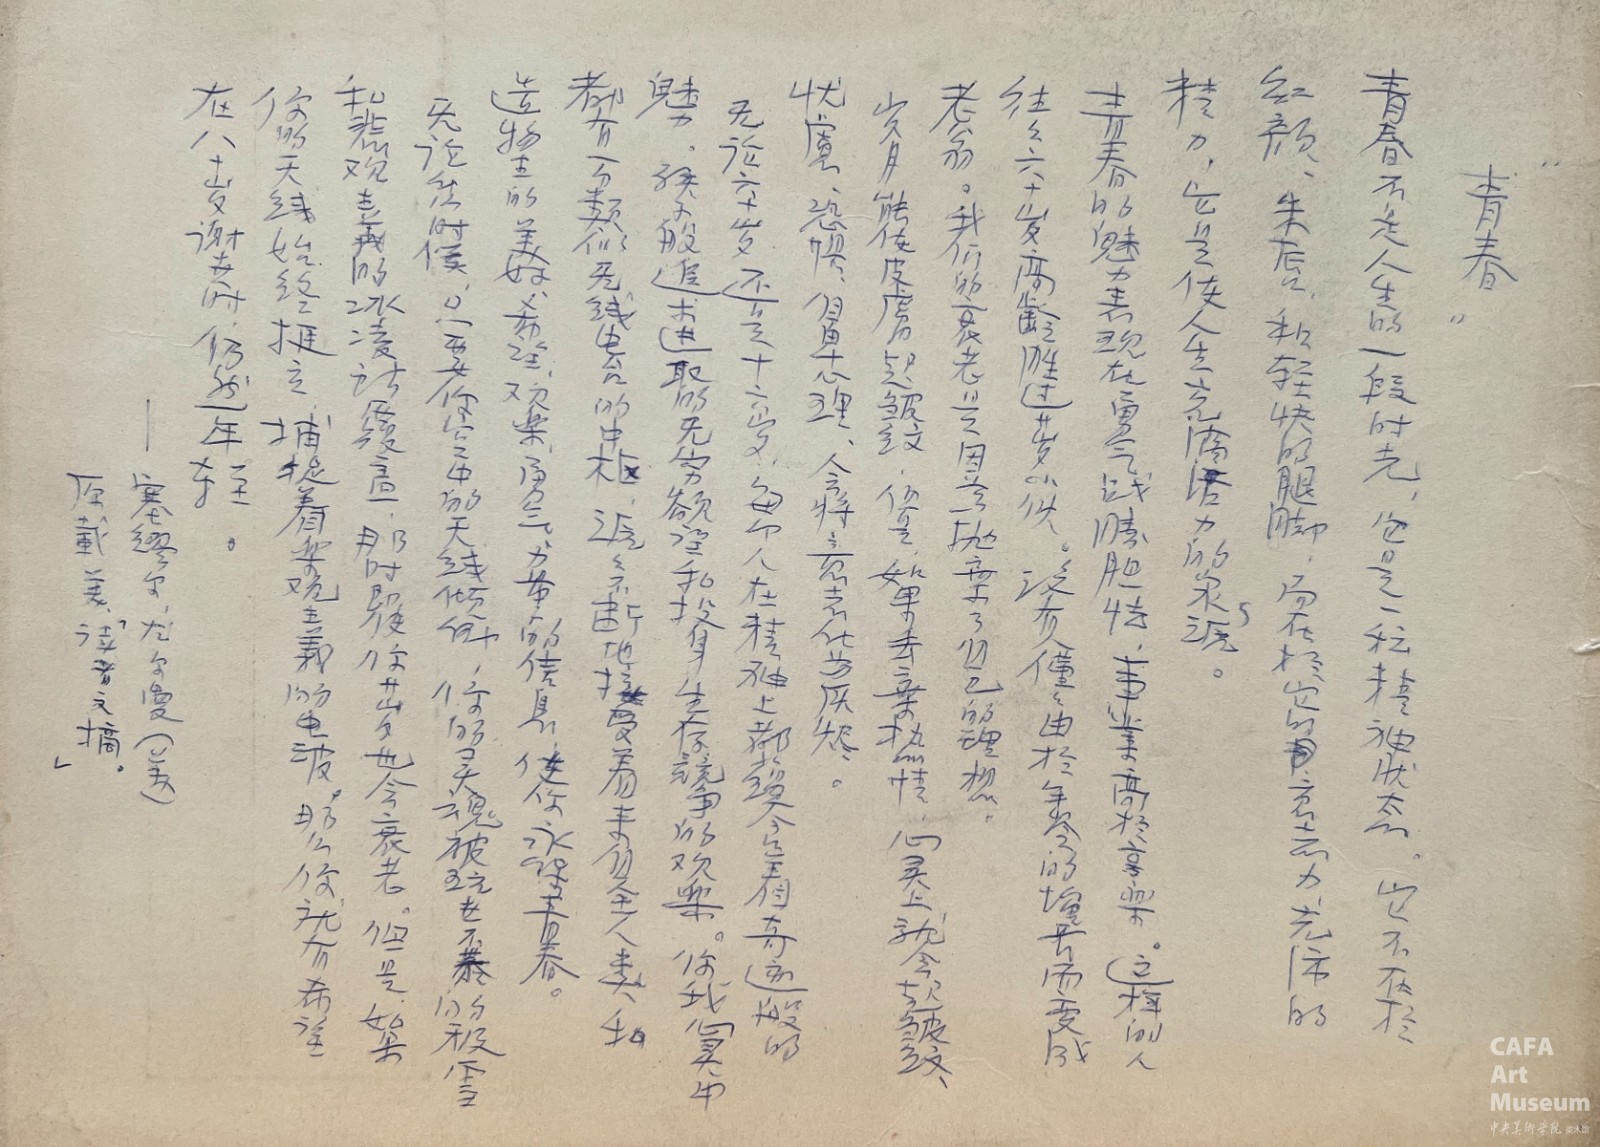 "青春"
青春不是人生的一段时光，它是一种精神状态。它不在于
红颜、朱唇和轻快的腿脚，而在于它的意志力充沛的
精力，它是使人生充满活力的泉源。
青春的魅力表现在勇气战胜胆怯，事业高於享乐。这样的人
往往六十岁高龄胜过廿岁小伙。没有人仅仅由於年令的增长而变成
老翁。我们的衰老是因为抛弃了自己的理想。
岁月能使皮肤起皱纹，但是，如果丢弃热情，心灵上就会起皱纹、
忧虑、恐惧、会将意志化为灰烬。
无论六十岁还是十六岁，每个人在精神上都会有着奇迹般的
魅力。孩子般追求进取的无穷欲望和投身生存竞争的欢乐。你我心灵中
都有一个类似无线电台的中枢，源源不断地接受着来自全人类和
造物主的美好、希望、欢乐、勇气、力量的信息，使你永葆青春。
无论在何时候，只要你心中的天线倾倒，你的灵魂被玩世不恭的积雪
和悲观主義的冰凌所覆盖，那时即使你廿岁也会衰老。但是如果
你的天线始终挺立，捕捉着乐观主義的电波。那么你就有希望
在八十岁谢世时，仍然年轻。
——塞缪尔·尤尔曼（美）
原载美「读者文摘。」
CAFA
Art
Museum
中央美術学院 美术馆